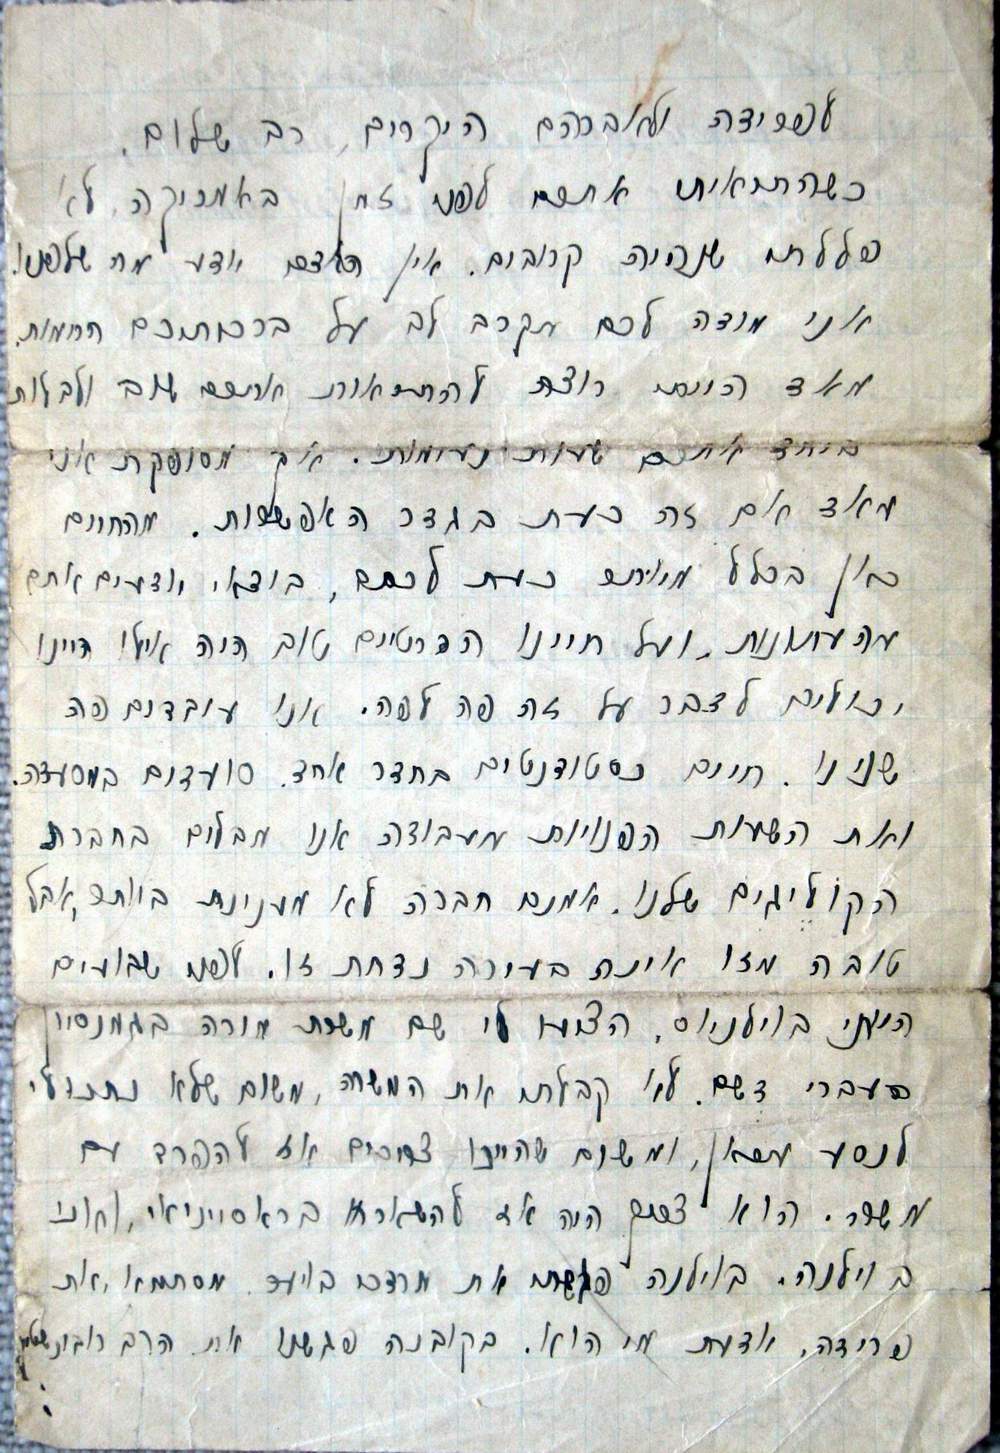 לפרידה ולאברהם היקרים, רב שלום.
כשהתראיתי אתכם לפני זמן באמריקה, לא
פללתי שנהיה קרובים. אין האדם יודע מה שלפניו.
אני מודה לכם מקרב לב על ברכתכם החמות.
מאד הייתי רוצה להתראות אתכם שוב ולבלות
ביחד אתכם שעות נעימות. אך מסופקת אני
מאד אם זה כעת בגדר האפשרות. מהחיים
כאן בכלל כעת לכתב, בודאי יודעים אתם
מהעתונות. ועל חיינו הפרטיים טוב היה אילו היינו
יכולים לדבר על זה פה לפה. אנו עובדים פה
שנינו. חיים כסטודנטים בחדר אחד. סועדים במסעדה.
ואת השעות הפנויות מעבודה אנו מבלים בחברת
הקוליגים שלנו. אמנם חברה לא מענינת ביותר, אבל
טובה מזו אינה בעירה נדחת זו. לפני שבועים
הייתי בוילניוס. הציעו לי שם משרת מורה בגמנסיון
העברי דשם. לא קבלתי את המשרה, משום שלא נתנו לי
לנסע מכאן, ומשום שהיינו צריכים אז להפרד עם
משה. הוא צריך היה אז להשאר בראסייניאי, ואני
בוילנה. בוילנה פגשתי את מרדכי מסתמא, את
פרידה, יודעת מי הוא. בקובנה פגשנו את הרב